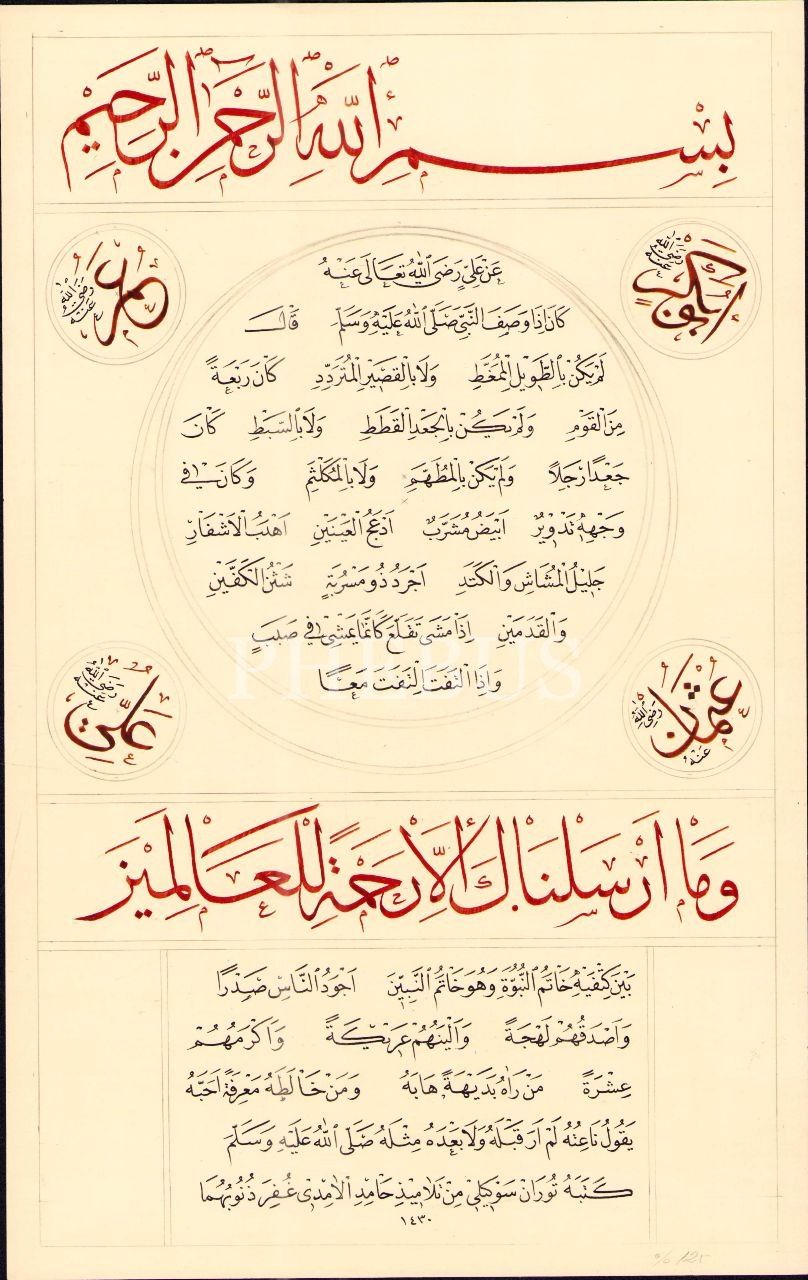 بِسْمِ اللّٰهِ الرَّحْمٰنِ الرَّحِيْمِ
ابُوبَكْرٍ رَضِيَ اللّٰهُ عَنْهُ
عُمَرُ رَضِيَ اللّٰهُ عَنْهُ
عَنْ عَلِيٍّ رَضِيَ اللّٰهُ تَعَالٰى عَنْهُ
كَانَ اِذَا وَصَفَ النَّبِيَّ صَلَّى اللّٰهُ عَلَيْهِ وَسَلَّمَ قَالَ
لَمْ يَكُنْ بِالطَّوِيْلِ الْمُمَّغَطِ وَلَا بِالْقَصِيْرِ الْمُتَرَدِّدِ كَانَ رَبْعَةً
مِنَ الْقَوْمِ وَلَمْ يَكُنْ بِالْجَعْدِ الْقَطَطِ وَلَا بِالسَّبْطِ كَانَ
جَعْدًا رَجْلًا وَلَمْ يَكُنْ بِالْمُطَهَّمِ وَلَا بِالْمُكَلْثَمِ وَكَانَ فِي
وَجْهِهٖ تَدْوِيْرٌ اَبْيَضُ مُشْرَبٌ اَدْعَجُ الْعَيْنَيْنِ اَهْدَبُ الْاَشْفَارِ
جَلِيْلُ الْمُشَاشِ وَالْكَتَدِ اَجْرَدُ ذُو مَسْرُبَةٍ شَثْنُ الْكَفَّيْنِ
وَالْقَدَمَيْنِ اِذَا مَشٰى تَقَلَّعَ كَاَنَّمَا يَمْشِيْ فِي صَبَبٍ
وَاِذَا الْتَفَتَ الْتَفَتَ مَعًا
عُثْمَانُ رَضِيَ اللّٰهُ عَنْهُ
عَلِيٌّ رَضِيَ اللّٰهُ عَنْهُ
PHEBUS
وَمَا اَرْسَلْنَاكَ اِلَّا رَحْمَةً لِلْعَالَمِيْنَ
بَيْنَ كَتِفَيْهِ خَاتَمُ النُّبُوَّةِ وَهُوَ خَاتَمُ النَّبِيِّيْنَ اَجْوَدُ النَّاسِ صَدْرًا
وَاَصْدَقُهُمْ لَهْجَةً وَاَلْيَنُهُمْ عَرِيْكَةً وَاَكْرَمُهُمْ
عِشْرَةً مَنْ رَاٰهُ بَدِيْهَةً هَابَهُ وَمَنْ خَالَطَهُ مَعْرِفَةً اَحَبَّهُ
يَقُوْلُ نَاعِتُهُ لَمْ اَرَ قَبْلَهُ وَلَا بَعْدَهُ مِثْلَهُ صَلَّى اللّٰهُ عَلَيْهِ وَسَلَّمَ
كَتَبَهُ تُوْرَانْ سَوْگِيلِي مِنْ تَلَامِيْذِ حَامِدِ الْاٰمِدِي غُفِرَ ذُنُوْبُهُمَا
١٤٣٠
% 125